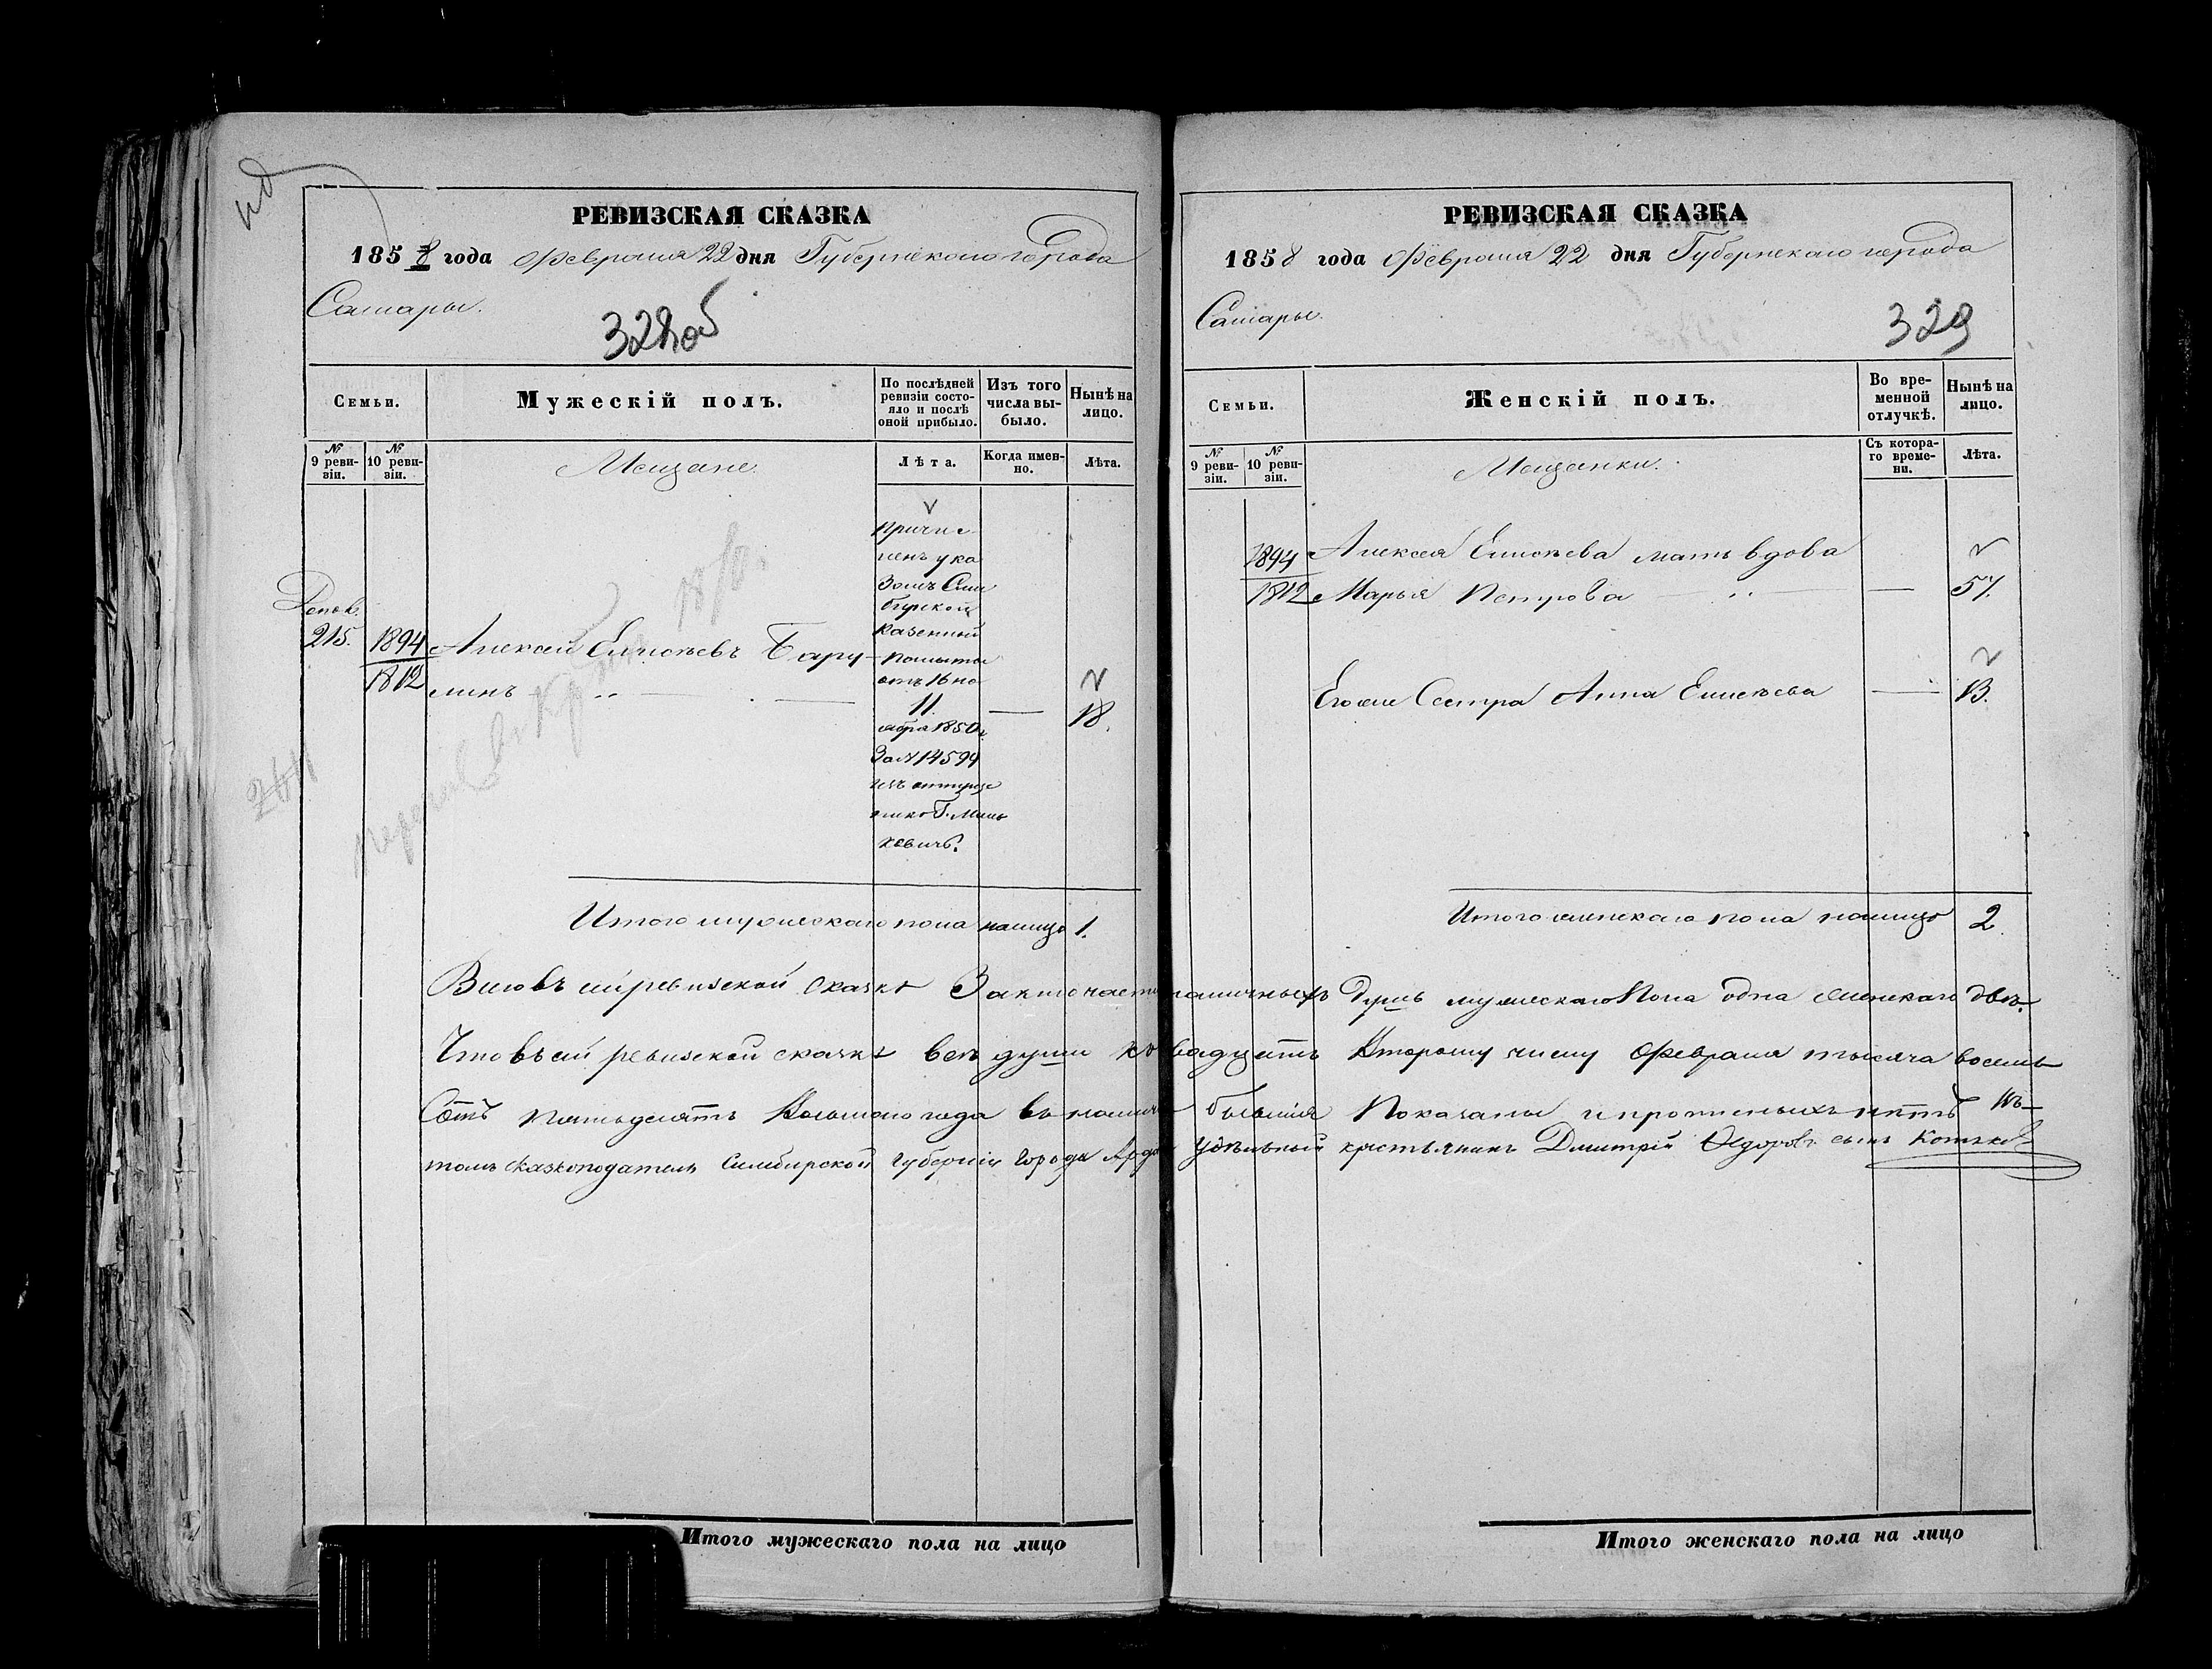 РЕВИЗСКАЯ СКАЗКА
1858 года Февраля 22 дня Губернскаго города
Самары.
328об
Семьи.
Мужескій полъ.
По послѣдней ревизіи состояло и послѣ оной прибыло.
Изъ того числа выбыло.
Нынѣ на лицо.
№ 9 ревизіи.
№ 10 ревизіи.
Мещане.
Лѣта.
Когда именно.
Лѣта.
215.
1894
1812
Алексей Елисѣевъ Бару-
линъ
Причис
ленъ ука
зомъ Сим
бирской
казенной
палаты
отъ 16 но
11.
ября 1850 г
За № 14594
18.
Итого мужескаго пола налицо 1.
РЕВИЗСКАЯ СКАЗКА
1858 года Февраля 22 дня Губернскаго города
Самары.
329
Семьи.
Женскій полъ.
Во временной отлучкѣ.
Нынѣ на лицо.
№ 9 ревизіи.
№ 10 ревизіи.
Мещанки.
Съ котораго времени.
Лѣта.
1894
1812
Алексея Елисѣева мать вдова
Марья Петрова 57.
Егоже Сестра Анна Елисѣева 13.
Итого женскаго пола налицо 2
ревизской сказкѣ Заключается наличныхъ душъ мужескаго Пола одна женскаго двѣ.
Что въ сей ревизской сказкѣ всѣ души къ двадцать Второму числу Февраля тысяча восемь
Сотъ пятьдесятъ Восьмого года въ наличіи бывшія Показаны и прописныхъ нѣтъ Въ
томъ сказкоподатель Симбирской губерніи города удѣльный крестьянинъ Дмитрій Федоровъ сынъ
Итого мужескаго пола на лицо
Итого женскаго пола на лицо